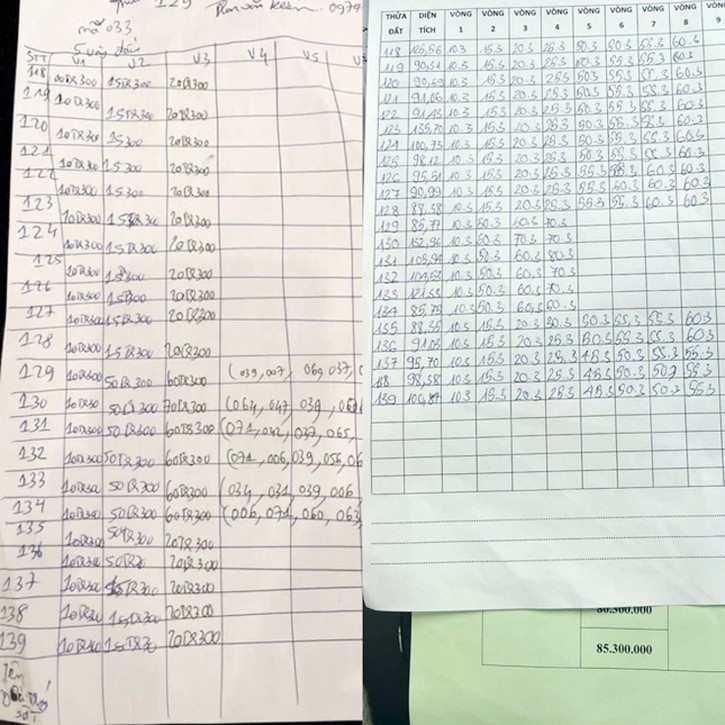 129 0979
mã 033
STT V1 V2 V3 V4 V5
118 10TR300 15TR300 20TR300
119 10TR300 15TR300 20TR300
120 10TR300 15300 20TR300
121 10TR300 15300 20TR300
122 10TR300 15300 20TR300
123 10TR300 15TR300 20TR300
124 10TR300 15TR300 20TR300
125 10TR300 20TR300
126 10TR300 20TR300
127 10TR300 15TR300 20TR300
128 10TR300 15TR300 20TR300
129 10TR300 50TR300 60TR300 (039,007, 069,037,
130 10TR30 50TR300 70TR300 (064,047,039,
131 10TR300 50TR300 60TR300 (071,042,037,065,
132 10TR300 50TR300 60TR300 (071,006,039,056,06
133 10TR300 50TR300 60TR300 (034,031,039,006
134 10TR300 50TR300 60TR300 (006,071,060,063
135 10TR300 50TR300 20TR300
136 10TR300 50TR30 20TR300
137 10TR300 15TR300 20TR300
138 10TR30 15TR300 20TR300
139 10TR300 15TR30 20TR300
Tên
THỬA ĐẤT DIỆN TÍCH VÒNG 1 VÒNG 2 VÒNG 3 VÒNG 4 VÒNG 5 VÒNG 6 VÒNG 7 VÒNG 8 VÒNG 9
118 126,56 10.3 15.3 20.3 25.3 50.3 50.3 55.3 60.3
119 90,51 10.3 15.3 20.3 25.3 50.3 55.3 55.3 60.3
120 90,69 10.3 15.3 20.3 25.3 50.3 55.3 55.3 60.3
121 91,06 10.3 15.3 20.3 25.3 50.3 55.3 55.3 60.3
122 91,43 10.3 15.3 20.3 25.3 50.3 55.3 55.3 60.3
123 155,70 10.3 15.3 20.3 25.3 50.3 55.3 55.3 60.3
124 100,73 10.3 15.3 20.3 25.3 50.3 55.3 55.3 60.3
125 98,12 10.3 15.3 20.3 25.3 50.3 55.3 55.3 60.3
126 95,51 10.3 15.3 20.3 25.3 55.3 55.3 60.3 60.3
127 90,99 10.3 15.3 20.3 25.3 55.3 60.3 60.3 60.3
128 88,58 10.3 15.3 20.3 25.3 55.3 55.3 60.3 60.3
129 85,77 10.3 50.3 60.3 70.3
130 152,96 10.3 50.3 70.3 70.3
131 105,94 10.3 50.3 60.3 80.3
132 10.3 50.3 60.3 70.3
133 10.3 50.3 60.3 70.3
134 85,79 10.3 50.3 60.3 60.3
135 88,35 10.3 15.3 20.3 30.3 50.3 55.3 55.3 60.3
136 91,03 10.3 15.3 20.3 25.3 50.3 55.3 55.3 60.3
137 95,70 10.3 15.3 20.3 25.3 45.3 50.3 55.3 55.3
138 98,38 10.3 15.3 20.3 25.3 45.3 50.3 50.3 55.3
139 100,87 10.3 15.3 20.3 25.3 45.3 50.3 50.3 55.3
80.300.000
85.300.000